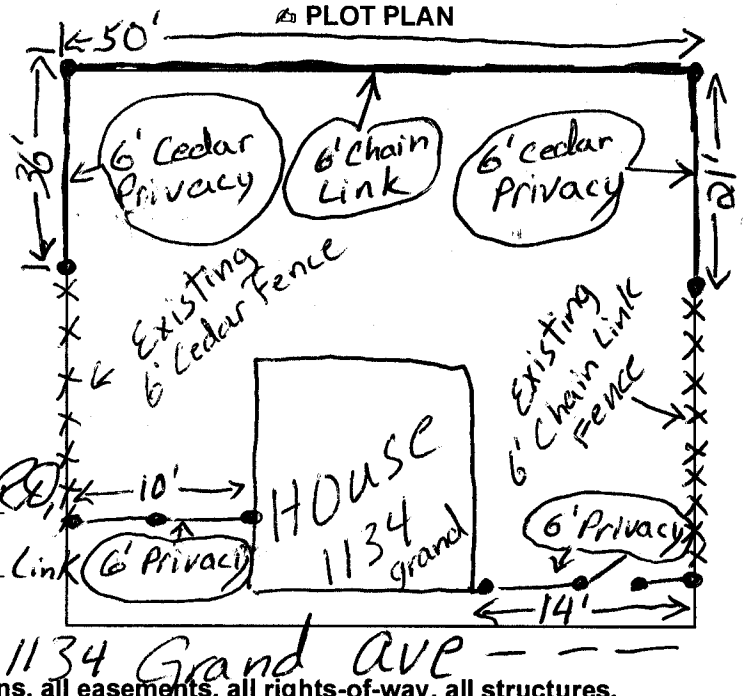 ✍ PLOT PLAN
50'
36'
6' Cedar
Privacy
6' Chain
Link
6' Cedar
Privacy
21'
Existing
6' Cedar Fence
Existing
6' Chain Link
Fence
10'
House
1134
grand
6' Privacy
6' Privacy
Link
14'
1134 Grand Ave
ns, all easements, all rights-of-way, all structures,